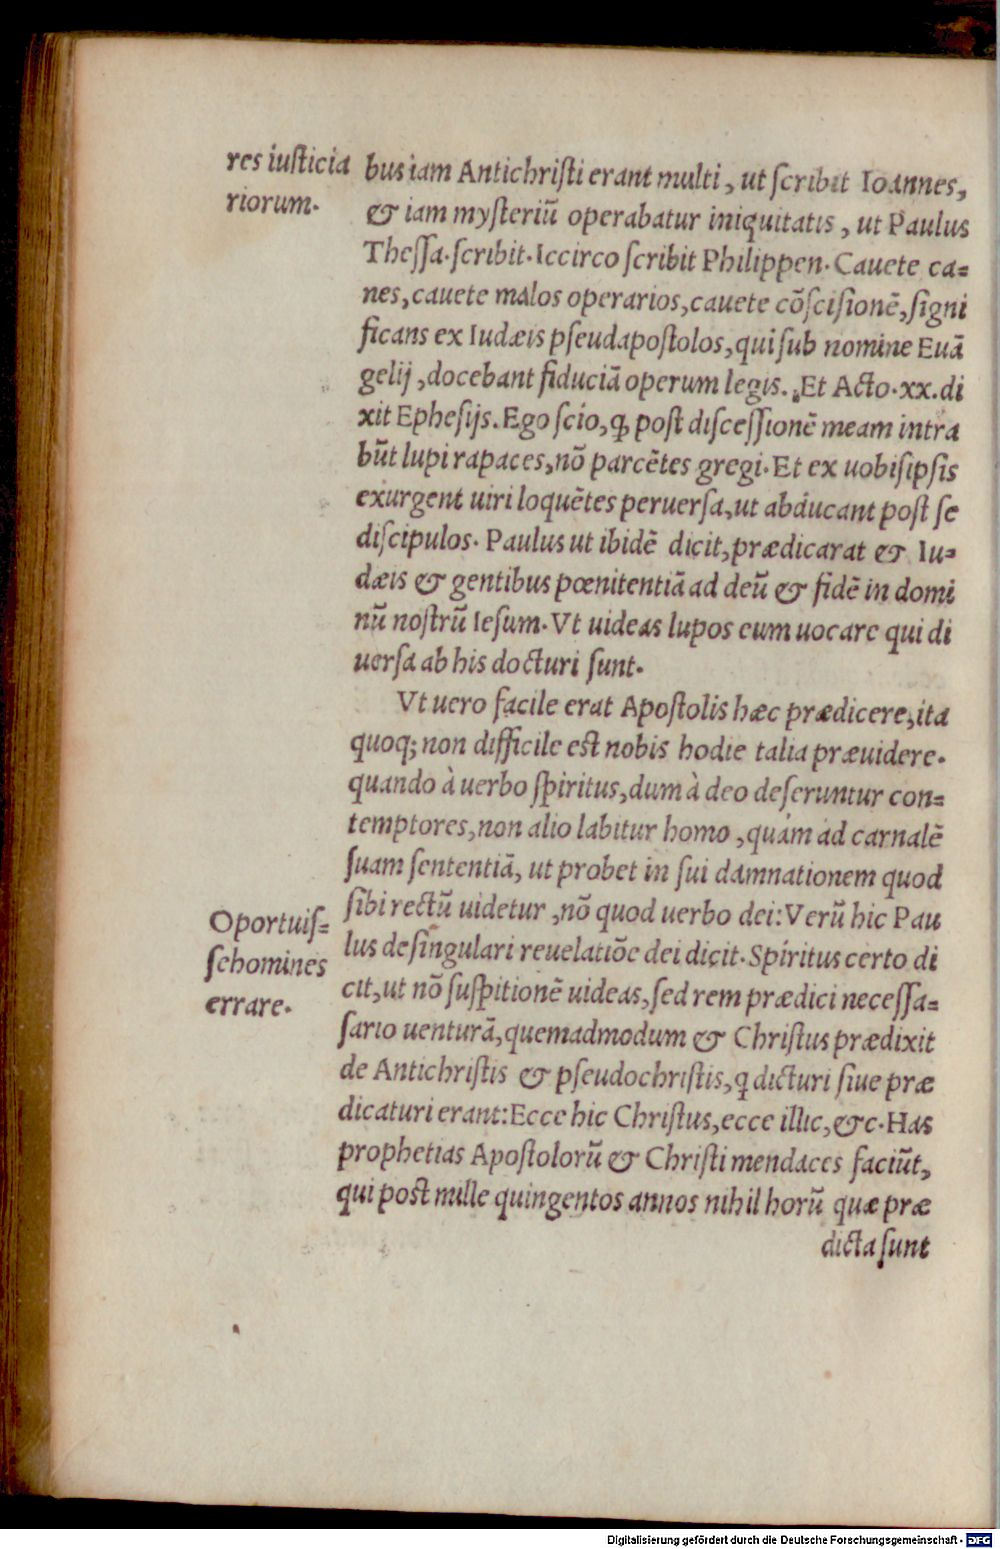 res iusticia
riorum.
bus iam Antichristi erant multi, ut scribit Ioannes,
& iam mysteriū operabatur iniquitatis, ut Paulus
Thessa. scribit. Iccirco scribit Philippen. Cauete ca=
nes, cauete malos operarios, cauete cōscisionē, signi
ficans ex Iudæis pseudapostolos, qui sub nomine Euā
gelij, docebant fiduciā operum legis. Et Acto. xx. di
xit Ephesijs. Ego scio, ꝙ post discessionē meam intra
būt lupi rapaces, nō parcētes gregi. Et ex uobisipsis
exurgent uiri loquētes peruersa, ut abducant post se
discipulos. Paulus ut ibidē dicit, prædicarat & Iu=
dæis & gentibus pœnitentiā ad deū & fidē in domi
nū nostrū Iesum. Vt uideas lupos eum uocare qui di
uersa ab his docturi sunt.
Vt uero facile erat Apostolis hæc prædicere, ita
quoq; non difficile est nobis hodie talia præuidere.
quando à uerbo spiritus, dum à deo deseruntur con=
temptores, non alio labitur homo, quám ad carnalē
suam sententiā, ut probet in sui damnationem quod
sibi rectū uidetur, nō quod uerbo dei: Verū hic Pau
lus de singulari reuelatiōe dei dicit. Spíritus certo di
cit, ut nō suspitionē uideas, sed rem prædici necessa=
sario uenturā, quemadmodum & Christus prædixit
de Antichristis & pseudochristis, ꝗ dicturi siue præ
dicaturi erant: Ecce hic Christus, ecce illic, &c. Has
prophetias Apostolorū & Christi mendaces faciūt,
qui post mille quingentos annos nihil horū quæ præ
dicta sunt
Oportuis=
se homines
errare.
Digitalisierung gefördert durch die Deutsche Forschungsgemeinschaft - DFG